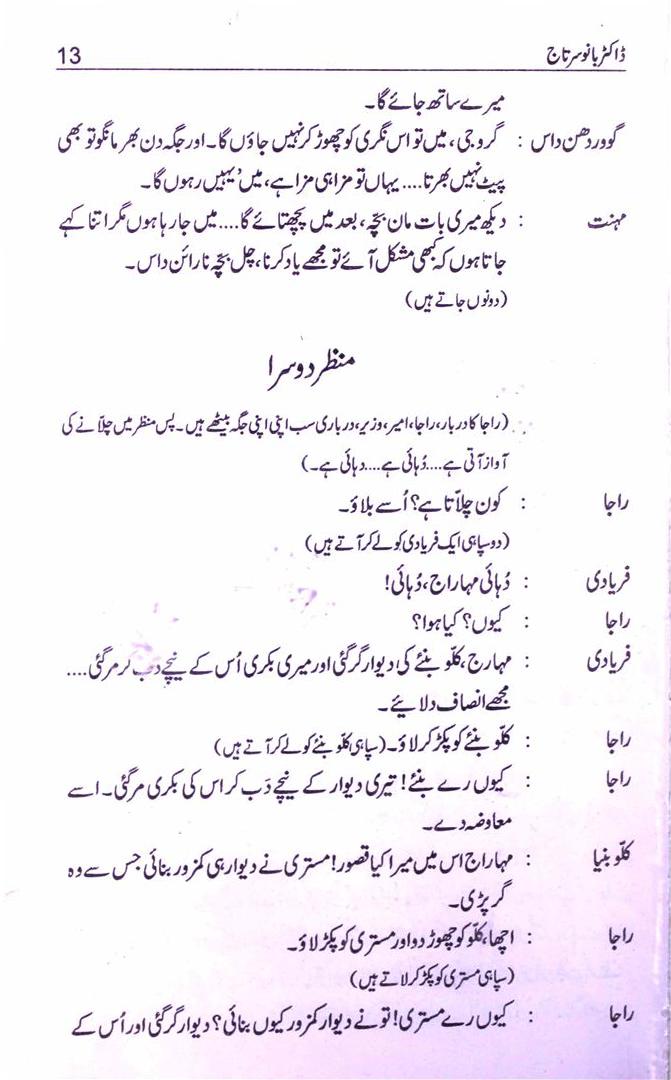 ڈاکٹر بانو سرتاج 13
میرے ساتھ جائے گا۔
گووردھن داس : گرو جی، میں تو اس نگری کو چھوڑ کر نہیں جاؤں گا۔ اور جگہ دن بھر مانگو تو بھی
پیٹ نہیں بھرتا.... یہاں تو مزا ہی مزا ہے، میں یہیں رہوں گا۔
مہنت : دیکھ میری بات مان بچہ، بعد میں پچھتائے گا.... میں جا رہا ہوں مگر اتنا کہے
جاتا ہوں کہ کبھی مشکل آئے تو مجھے یاد کرنا، چل بچہ نارائن داس۔
(دونوں جاتے ہیں)
منظر دوسرا
(راجا کا دربار، راجا، امیر، وزیر، درباری سب اپنی اپنی جگہ بیٹھے ہیں۔ پس منظر میں چلّانے کی
آواز آتی ہے.... دُہائی ہے.... دہائی ہے۔)
راجا : کون چلّاتا ہے؟ اُسے بلاؤ۔
(دو سپاہی ایک فریادی کو لے کر آتے ہیں)
فریادی : دُہائی مہاراج، دُہائی!
راجا : کیوں؟ کیا ہوا؟
فریادی : مہارج، کلّو بنئے کی دیوار گر گئی اور میری بکری اُس کے نیچے دب کر مر گئی....
مجھے انصاف دلائیے۔
راجا : کلّو بنئے کو پکڑ کر لاؤ۔ (سپاہی کلّو بنئے کو لے کر آتے ہیں)
راجا : کیوں رے بنئے! تیری دیوار کے نیچے دَب کر اس کی بکری مر گئی۔ اسے
معاوضہ دے۔
کلّو بنیا : مہاراج اس میں میرا کیا قصور! مستری نے دیوار ہی کمزور بنائی جس سے وہ
گر پڑی۔
راجا : اچھا، کلّو کو چھوڑ دو اور مستری کو پکڑ لاؤ۔
(سپاہی مستری کو پکڑ کر لاتے ہیں)
راجا : کیوں رے مستری! تو نے دیوار کمزور کیوں بنائی؟ دیوار گر گئی اور اُس کے